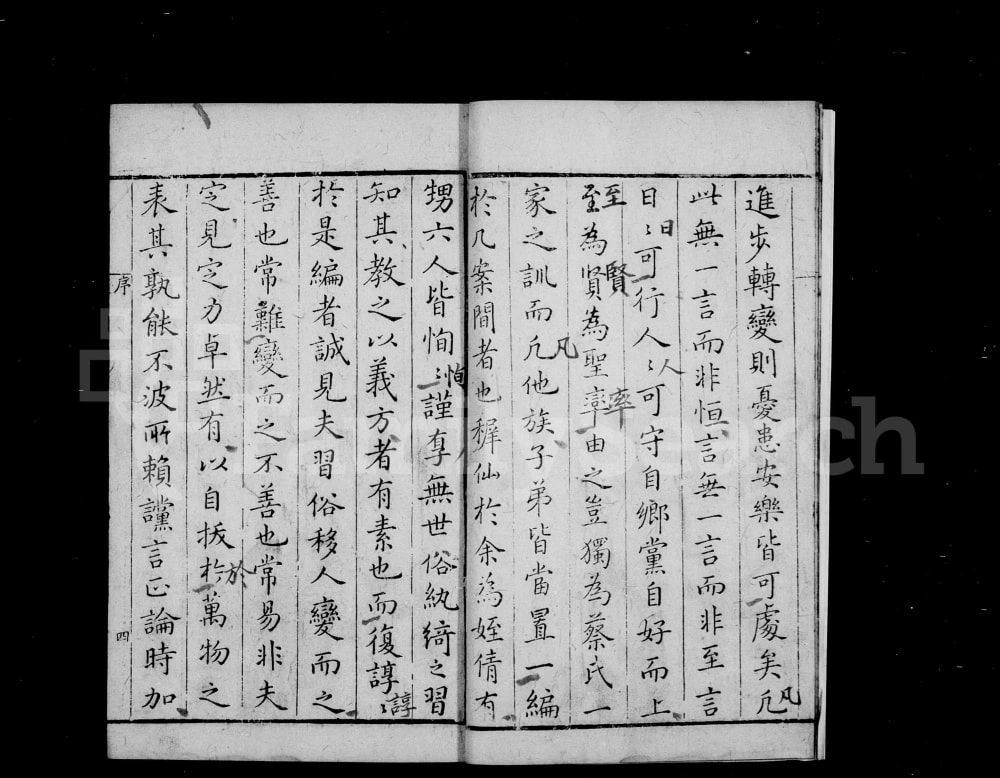 進步轉變則憂患安樂皆可處矣凡
此無一言而非恒言無一言而非至言
日〻可行人〻可守自鄉黨自好而上
至為賢為聖率由之豈獨為蔡氏一
家之訓而凡他族子弟皆當置一編
於几案間者也穉仙於余為姪倩有
甥六人皆恂〻謹厚無世俗紈綺之習
知其教之以義方者有素也而復諄〻
於是編者誠見夫習俗移人變而之
善也常難變而之不善也常易非夫
定見定力卓然有以自拔於萬物之
表其孰能不波所賴讜言正論時加
序
四
凡
日
人
至
賢
率
凡
恂
諄
於